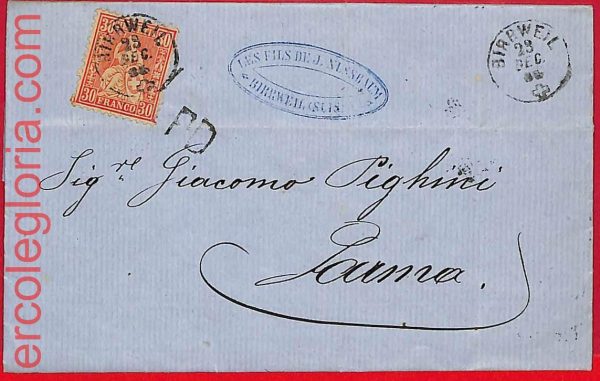 30 30
FRANCO
BIRRWEIL
23
DEC.
LES FILS DE J. NUSSBAUM
BIRRWEIL (SUISSE)
BIRRWEIL
23
DEC.
PD
Sig.re Giacomo Pighini
Parma.
ercolegloria.com